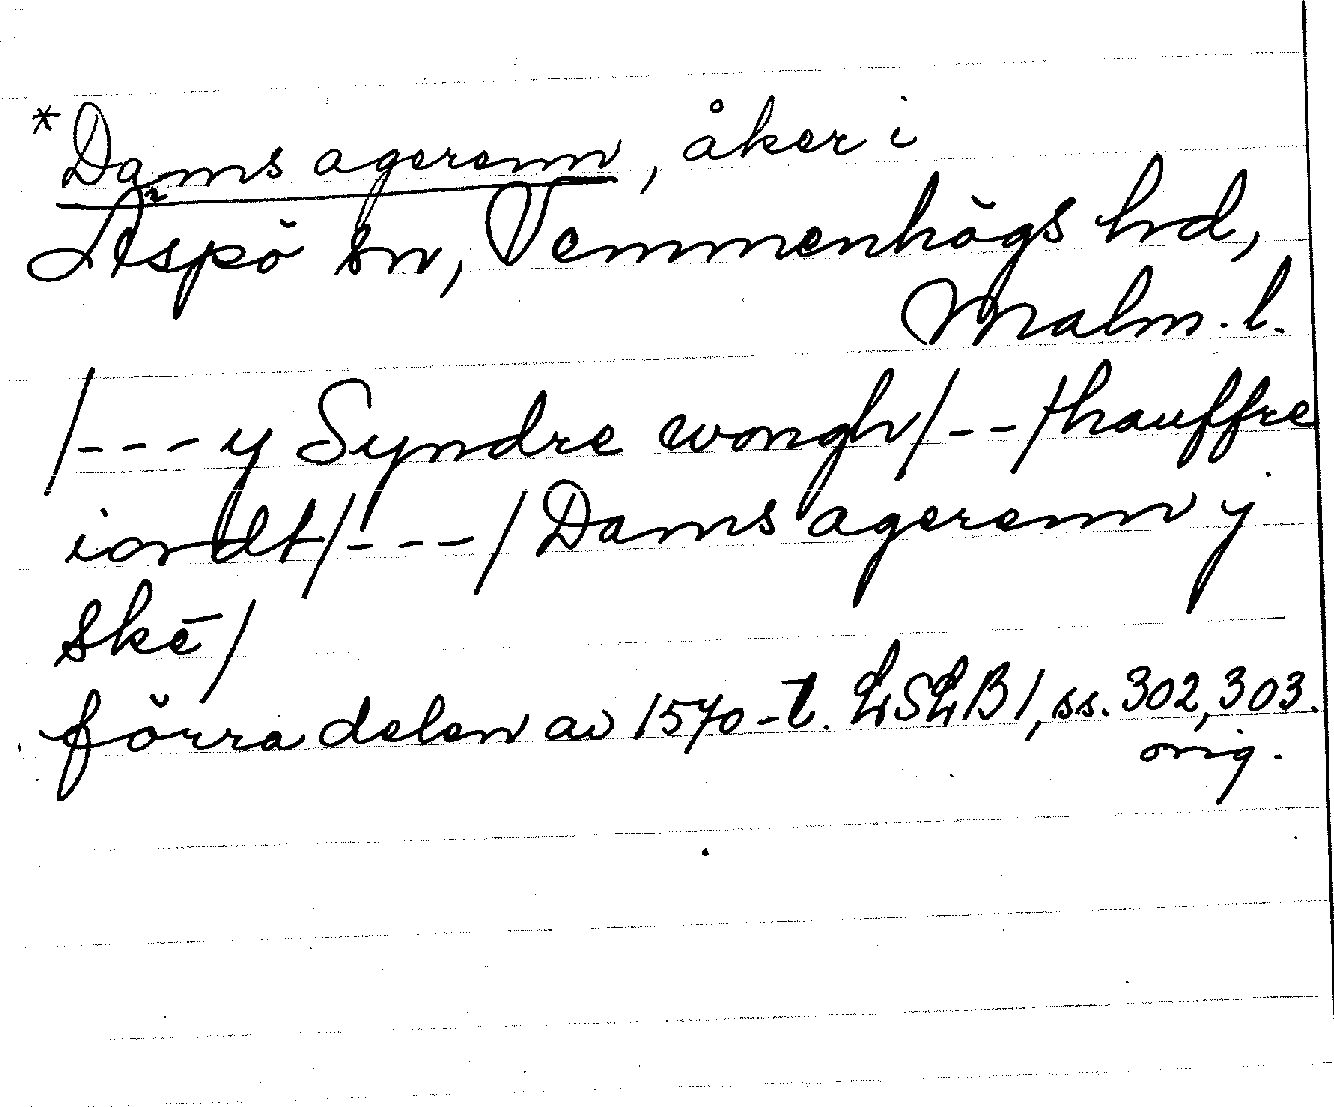 *Dams agerenn, åker i
Äspö sn, Vemmenhögs hd,
Malm. l.
/---y Syndre wongh/--/hauffre
iordt/---/Dams agerenn j
skē/
förra delen av 1570-t. LSLB1, ss. 302, 303.
orig.